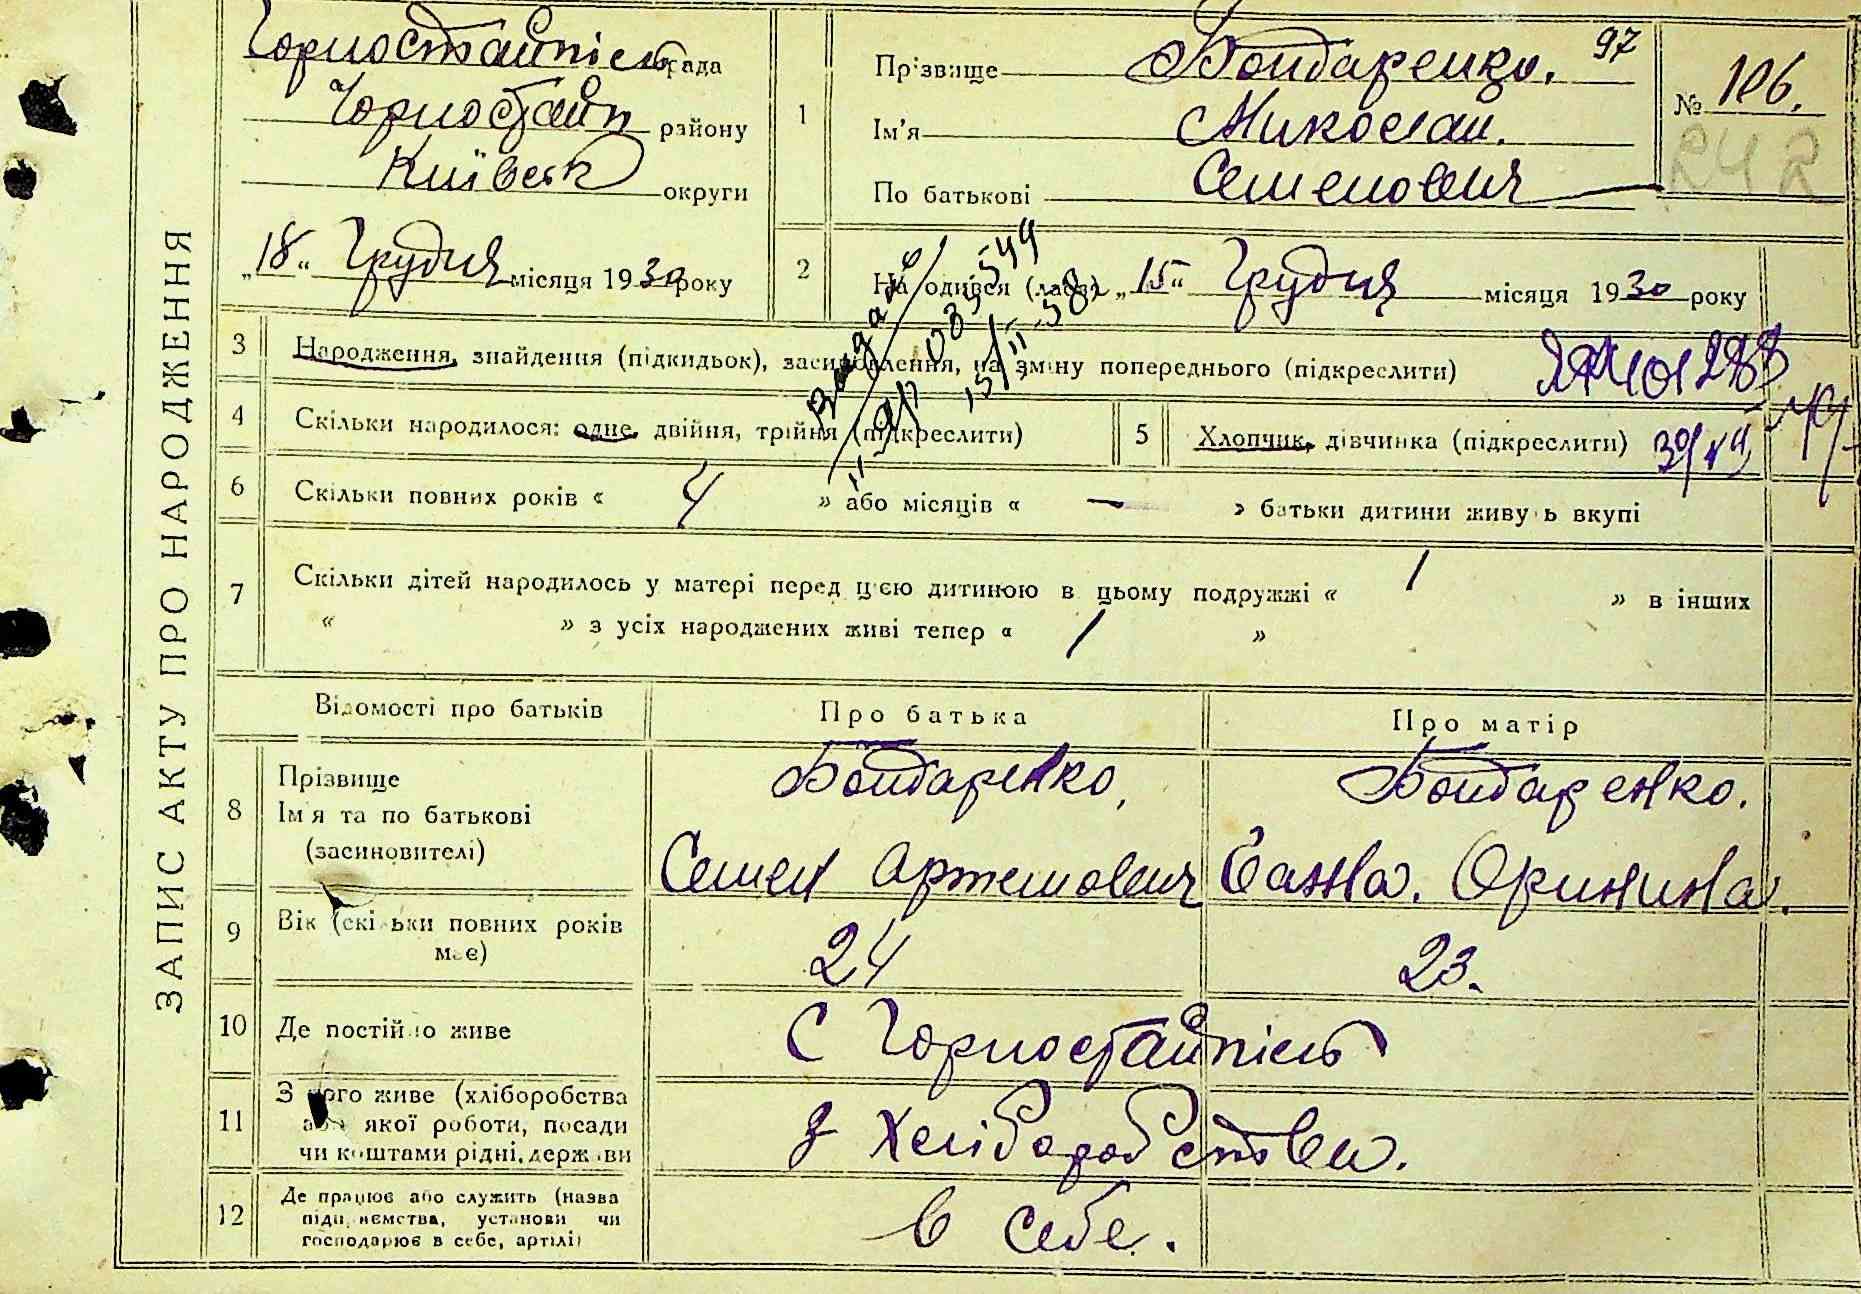 ЗАПИС АКТУ ПРО НАРОДЖЕННЯ
Горностайпіль рада
Горностайп району
Київськ округи
„18“ Грудня місяця 1930 року
1
Прізвище Бондаренко. 97
Ім'я Миколай.
По батькові Семенович
№ 106.
242
2 На одився (лась) „15“ Грудня місяця 1930 року
3 Народження, знайдення (підкидьок), засиновлення, на зміну попереднього (підкреслити)
4 Скільки народилося: одне, двійня, трійня (підкреслити)
5 Хлопчик, дівчинка (підкреслити)
6 Скільки повних років « 4 » або місяців « — » батьки дитини живу ь вкупі
7 Скільки дітей народилось у матері перед цією дитиною в цьому подружжі « 1 » в інших
« » з усіх народжених живі тепер « 1 »
Відомості про батьків Про батька Про матір
8 Прізвище Бондаренко, Бондаренко.
Ім'я та по батькові
(засиновителі) Семен Артемович Ганна.
9 Вік (скільки повних років
має) 24 23.
10 Де постійно живе С Горностайпіль
11 З чого живе (хліборобства
або якої роботи, посади
чи коштами рідні, держави з Хліборобства.
12 Де працює або служить (назва
підприємства, установи чи
господарює в себе, артілі) в себе.